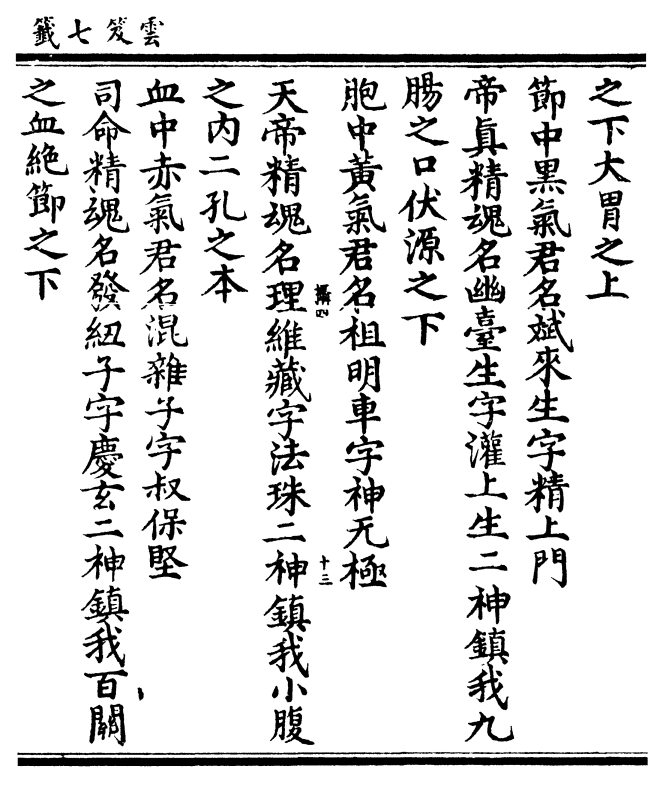 雲笈七籤
之下大胃之上
節中黑氣君名斌來生字精上門
帝真精魂名幽臺生字灌上生二神鎮我九
腸之口伏源之下
胞中黃氣君名祖明車字神无極
攝四
十三
天帝精魂名理維藏字法珠二神鎮我小腹
之內二孔之本
血中赤氣君名混雜子字叔保堅
司命精魂名發紐子字慶玄二神鎮我百關
之血絕節之下